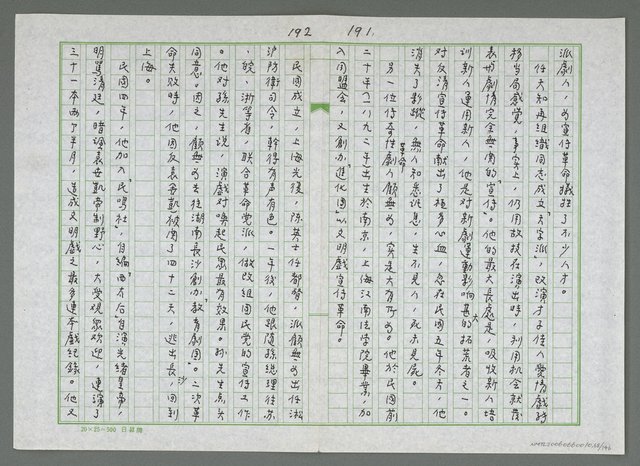 192
191.
派劇人，為宣傳革命犧牲了不少人才。
任天知再組織同志成立「天字派」，改演才子佳人愛情戲
移當局感覺，事實上，仍用故技在演出時，利用機會就
表視劇情完全無關的宣傳。他的最大長處是，吸收新人培
訓新人運用新人，他是對新劇運動影響甚大的拓荒者之一。
對反清宣傳革命獻出了極多心血，忽在民國五年冬天，他
消失了影蹤，無人知悉消息，生不見人，死亦未見屍。
另一位傳奇性革命劇人顧無為，實是大有所為。他於民國前
二十年（一八九二年）出生於南京，上海江南法學院畢業，加
入同盟會，又創辦「進化團」以文明戲宣傳革命。
民國成立，上海光復，陳英士任都督，派顧無為出任淞
滬防衛司令，幹得有聲有色。一年後，他跟隨孫總理往蘇
、皖、浙等省，聯合革命黨派，做改組國民黨的宣傳工作
。他對孫先生說，演戲對喚起民眾最有效果。孫先生点头
同意。因之，顧無為去往湖南長沙創办「教育劇團」。二次革
命失敗時，他因反袁世凱被關了四十二天，逃出長沙，回到
上海。
民國四年，他加入「民鳴社」，自編「西太后」自演光緒皇帝，
明罵清廷，暗諷袁世凱帝制野心，大受觀眾欢迎，連演了
三十一本兩个半月，造成文明戲之最多連本戲紀錄。他又
20×25=500 日昇牌